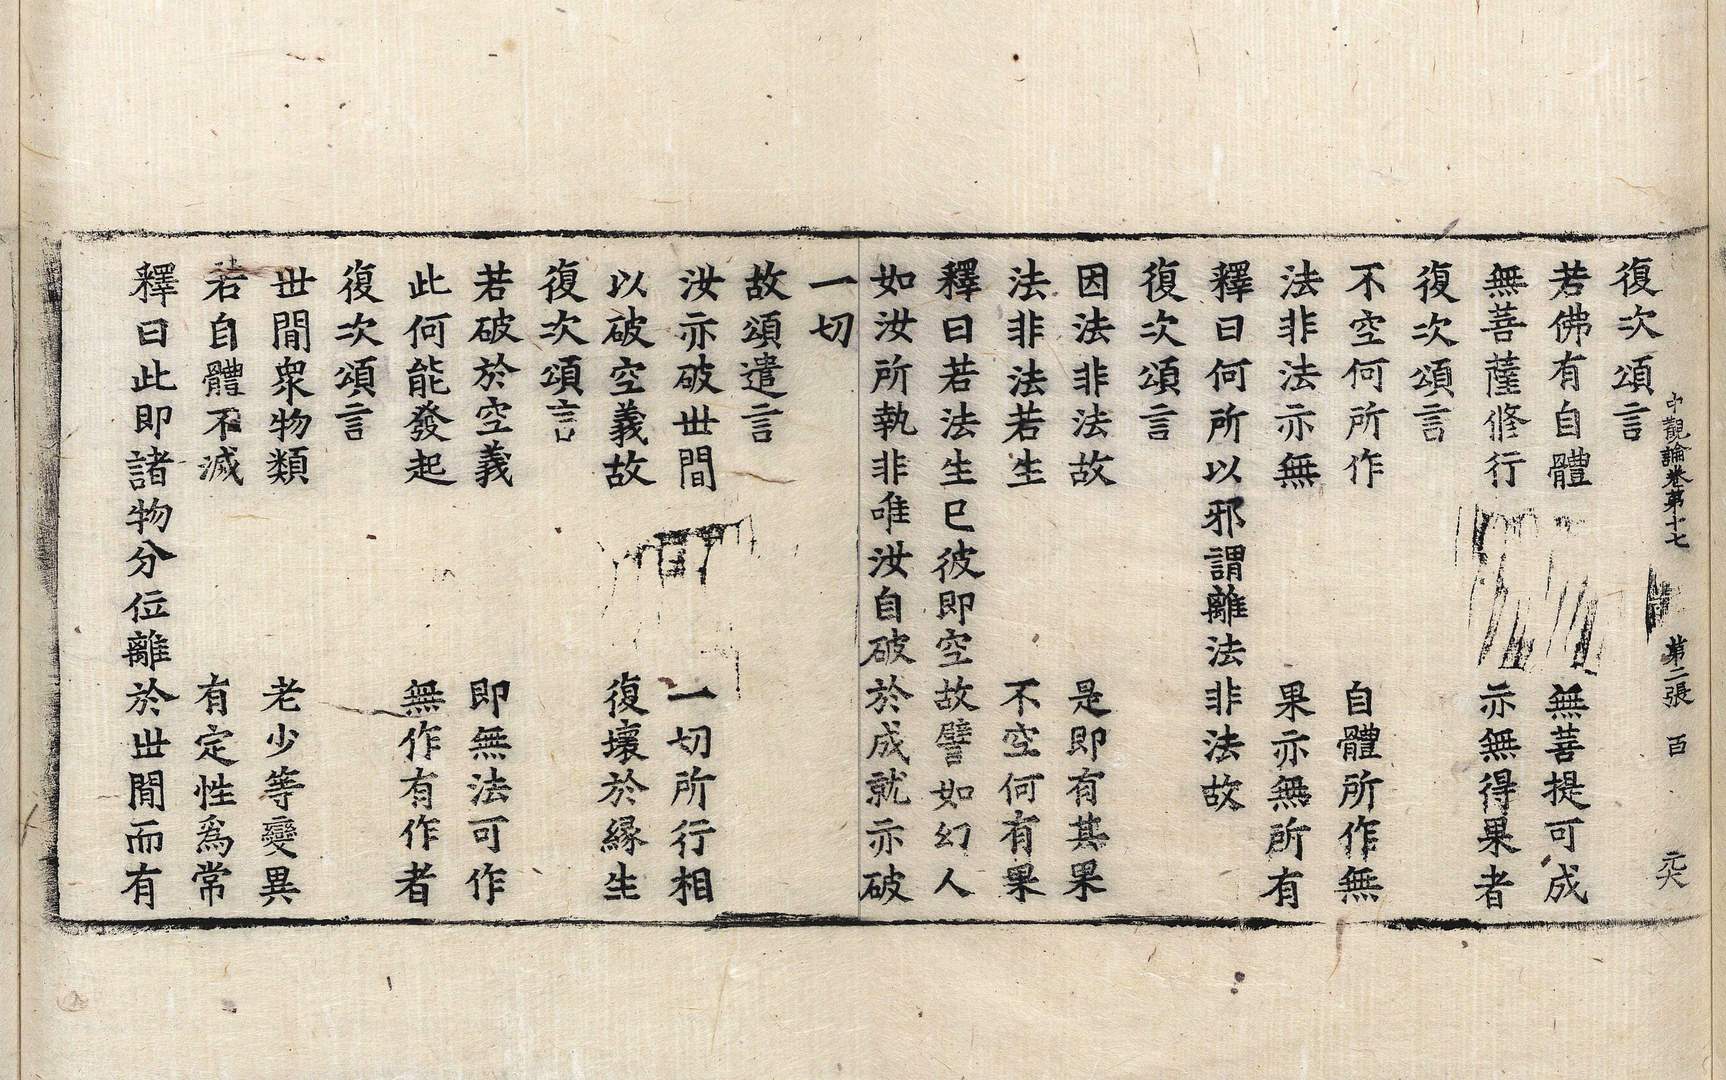 中觀論卷第十七 第二張 百 元六
復次頌言
若佛有自體 無菩提可成
無菩薩修行 亦無得果者
復次頌言
不空何所作 自體所作無
法非法亦無 果亦無所有
釋曰何所以邪謂離法非法故
復次頌言
因法非法故 是即有其果
法非法若生 不空何有果
釋曰若法生已彼即空故譬如幻人
如汝所執非唯汝自破於成就亦破
一切
故頌遣言
汝亦破世間 一切所行相
以破空義故 復壞於緣生
復次頌言
若破於空義 即無法可作
此何能發起 無作有作者
復次頌言
世間衆物類 老少等變異
若自體不滅 有定性爲常
釋曰此即諸物分位離於世間而有